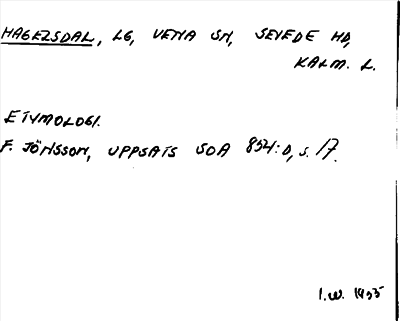 HAGELSDAL, LG, VENA SN, SEVEDE HD,
KALM. L.
ETYMOLOGI.
F. JÖNSSON, UPPSATS SOA 854:D, S. 17.
I.W.